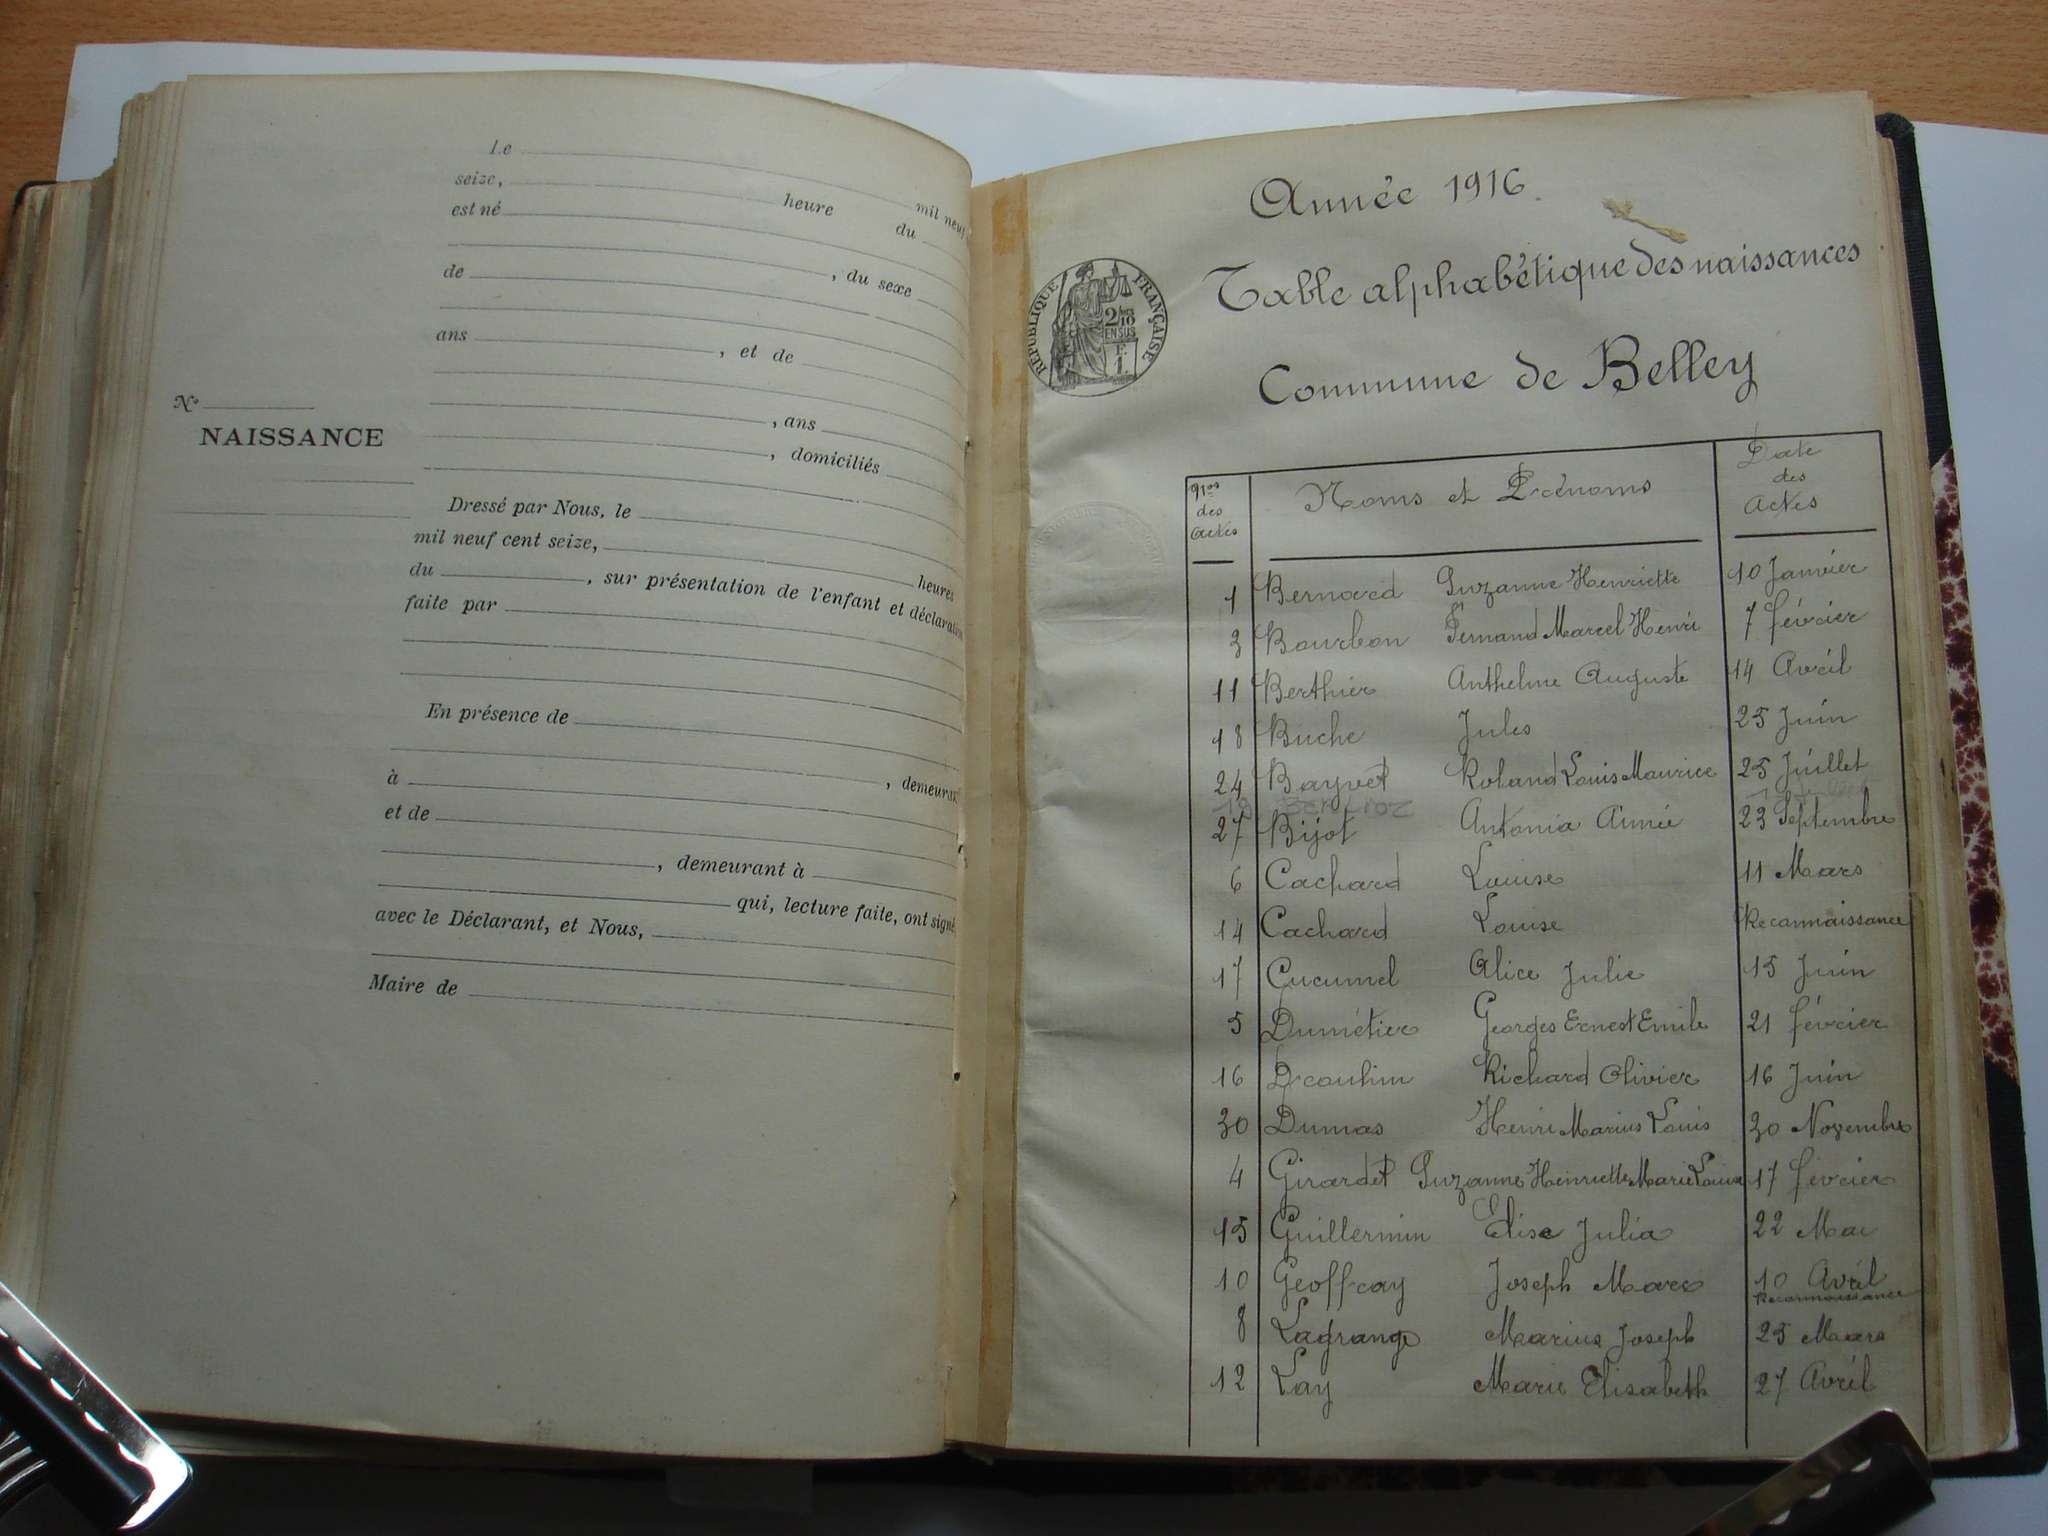 Le mil neuf
seize, heure du
est né
de , du sexe
ans , et de
, ans
, domiciliés
N°
NAISSANCE
Dressé par Nous, le
mil neuf cent seize, heures
du , sur présentation de l'enfant et déclaration
faite par
En présence de
, demeurant
à
et de
, demeurant à
qui, lecture faite, ont signé
avec le Déclarant, et Nous,
Maire de
Année 1916.
RÉPUBLIQUE FRANÇAISE
2/10
EN SUS
F.
1.
Table alphabétique des naissances
Commune de Belley
Nos des Actes Noms et Prénoms Date des Actes
1 Bernard Suzanne Henriette 10 Janvier
3 Bourbon Fernand Marcel Henri 7 février
11 Berthier Anthelme Auguste 14 Avril
18 Buche Jules 25 Juin
24 Bayvet Roland Louis Maurice 25 Juillet
19 Berlioz
27 Bijot Antonia Aimée 23 Septembre
6 Cachard Louise 11 Mars
14 Cachard Louise Reconnaissance
17 Cucumel Alice Julie 15 Juin
5 Dumétier Georges Ernest Emile 21 février
16 Drouhin Richard Olivier 16 Juin
30 Dumas Henri Marius Louis 30 Novembre
4 Girardet Suzanne Henriette Marie Louise 17 février
15 Guillermin Elise Julia 22 Mai
10 Geoffray Joseph Marc 10 Avril
Reconnaissance
8 Lagrange Marius Joseph 25 Maars
12 Lay Marie Elisabeth 27 Avril